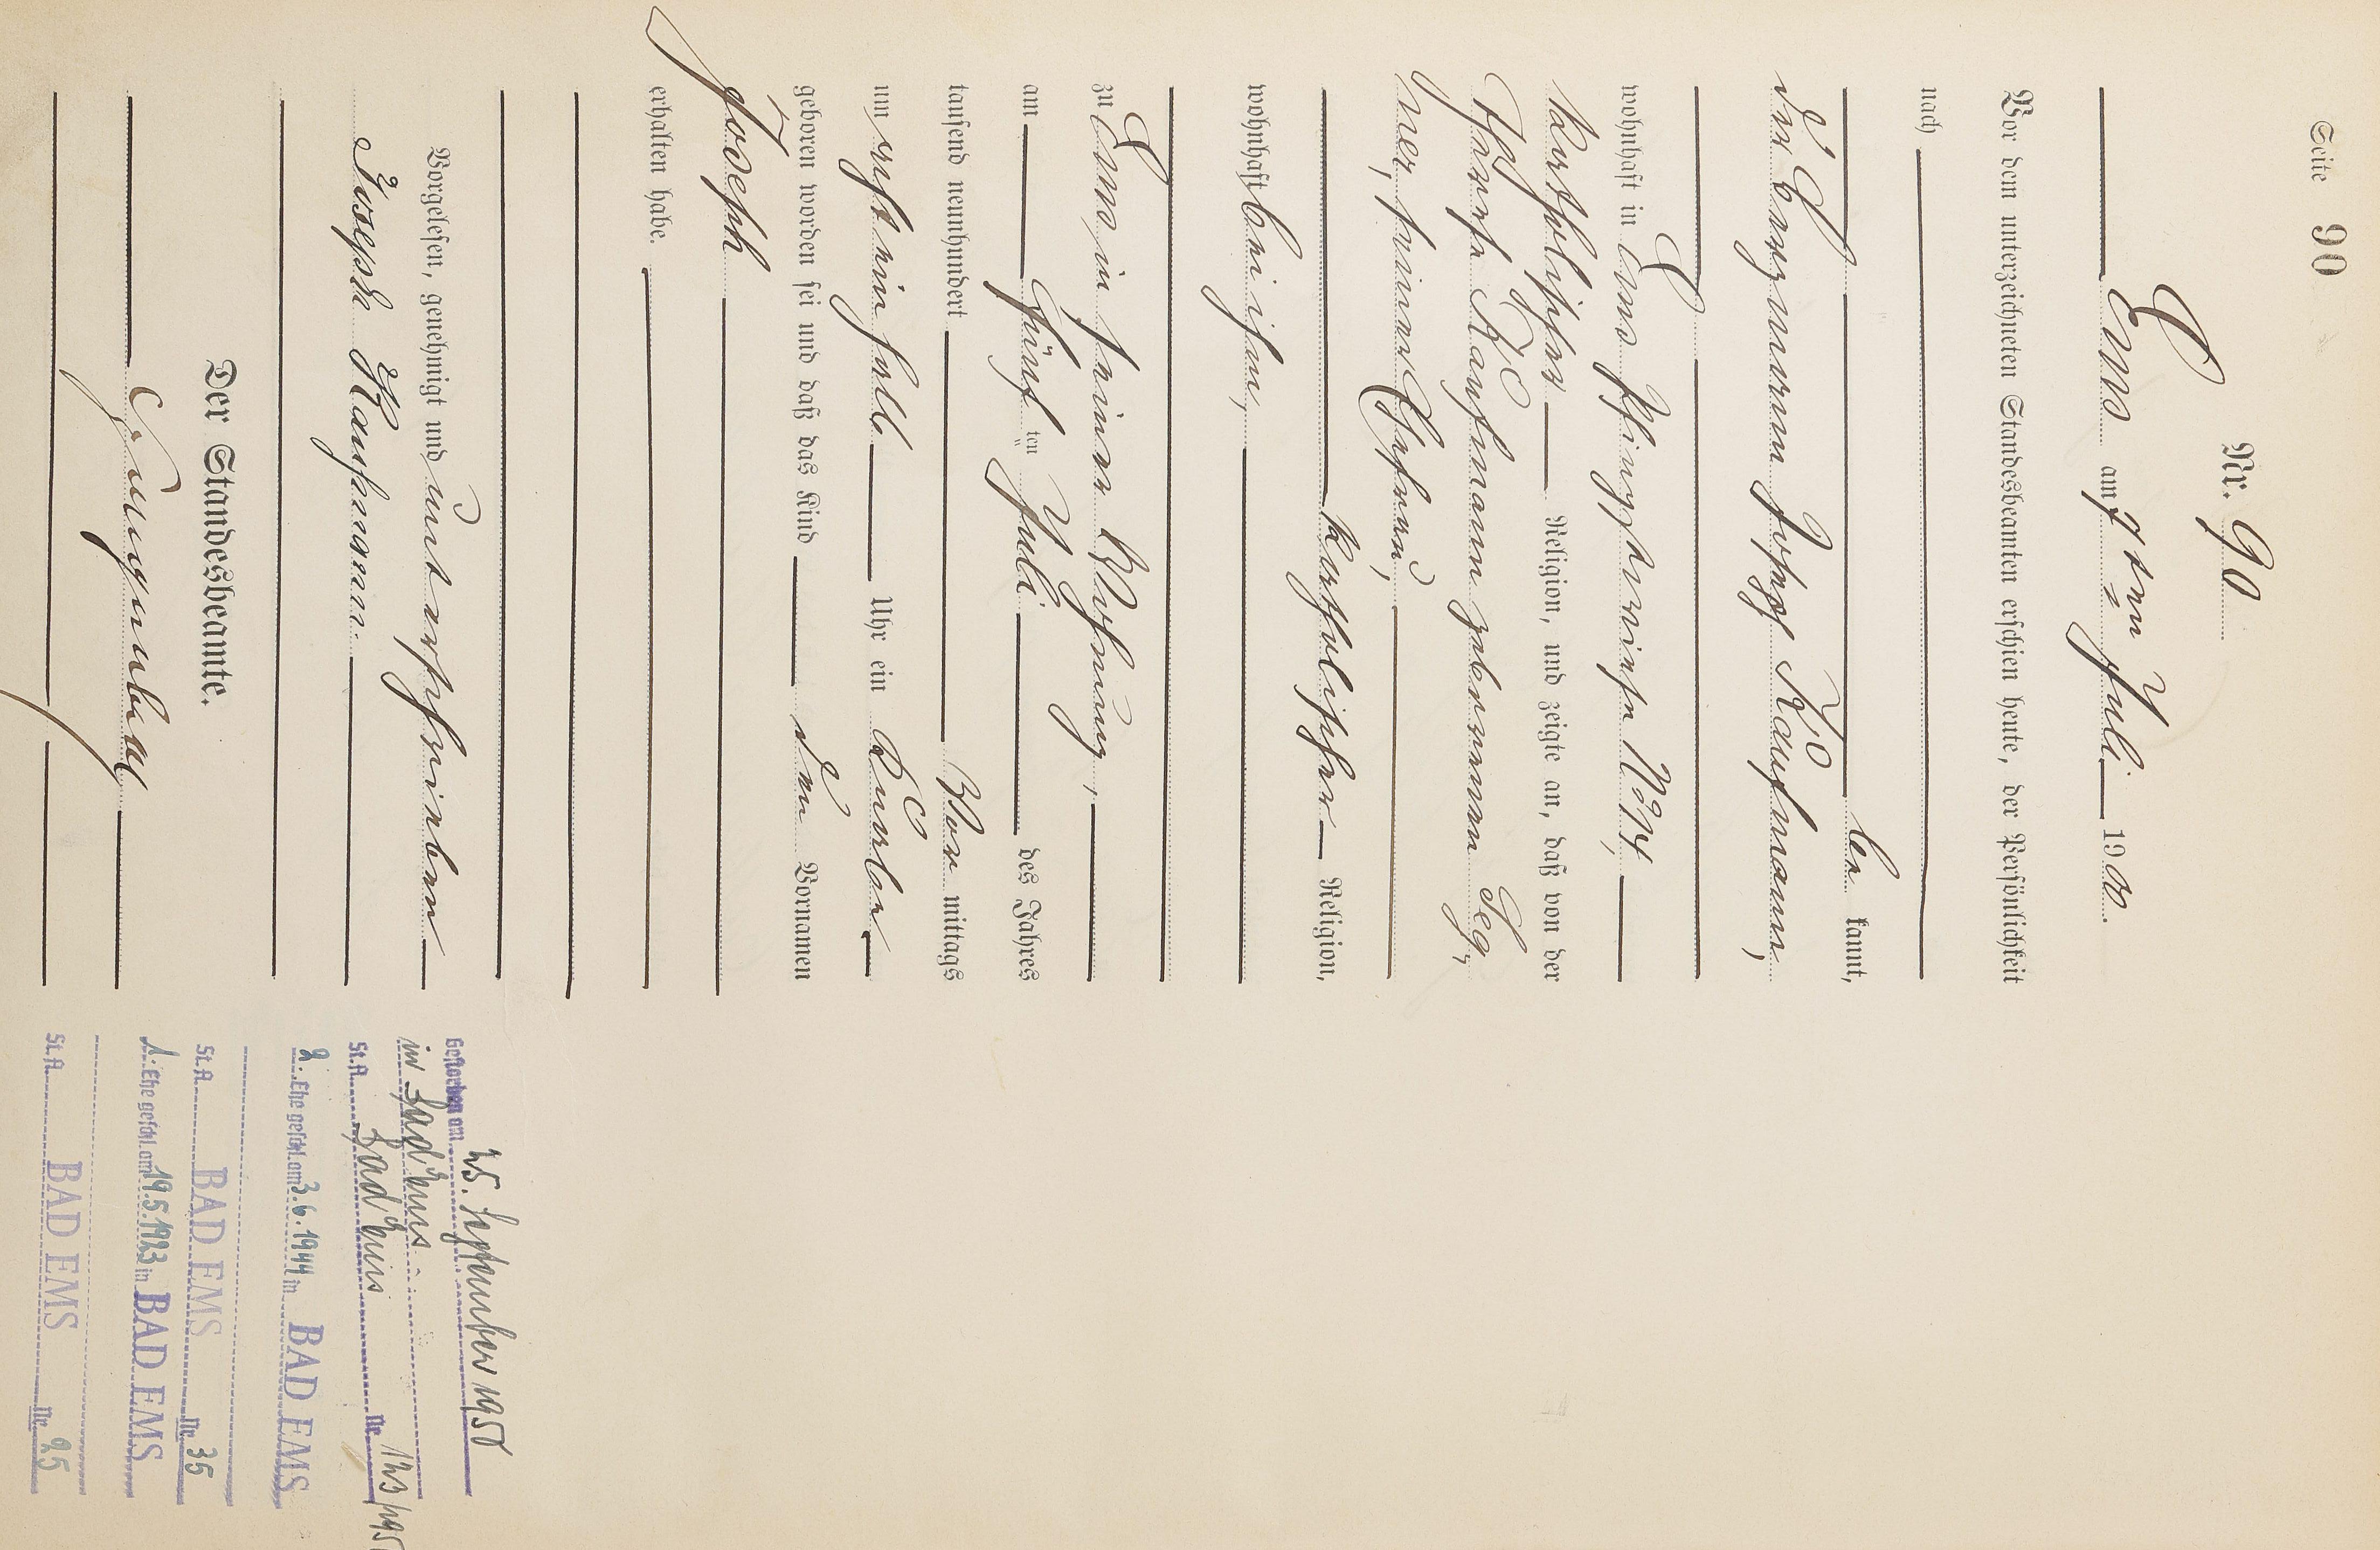 Seite 90
Nr. 90
Ems am 7ten Juli 1900.
Vor dem unterzeichneten Standesbeamten erschien heute, der Persönlichkeit
nach
be kannt,
der Bergmann Joseph Kaufmann,
wohnhaft in Ems Pfingstwiese No 14,
katholischer Religion, und zeigte an, daß von der
Kaufmann geborenen
seiner Ehefrau,
katholischer Religion,
wohnhaft bei ihm,
zu Ems in seiner Wohnung,
am fünf ten Juli des Jahres
tausend neunhundert Vor mittags
um erst ein halb Uhr ein Knabe
geboren worden sei und daß das Kind den Vornamen
Joseph
erhalten habe.
Vorgelesen, genehmigt und unterschrieben
Joseph Kaufmann.
Der Standesbeamte.
Gestorben am 25. September 1950
in Bad Ems.
St.A. Bad Ems Nr. 123/195
2. Ehe geschl. am 3.6.1944 in BAD EMS
St.A. BAD EMS Nr. 35
1. Ehe geschl. am 19.5.1923 in BAD EMS
St.A. BAD EMS Nr. 25